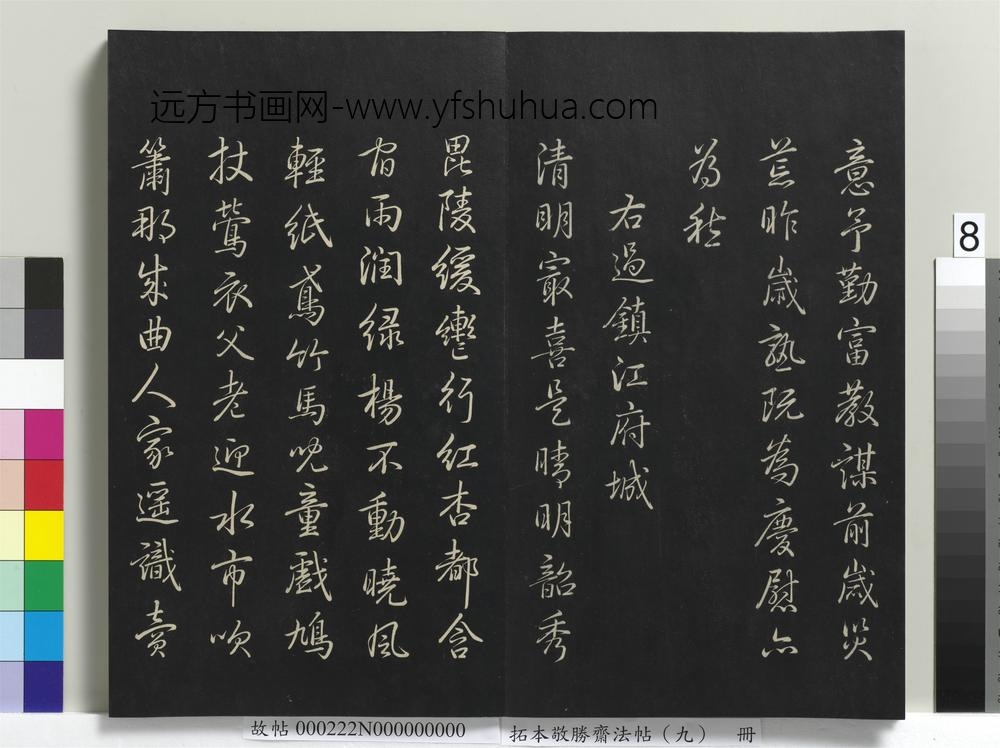 远方书画网-www.yfshuhua.com
意予勤富教謀前歲災
荒昨歲熟既為慶慰亦
為愁
右過鎮江府城
清明㝡喜是晴明韶秀
毘陵緩轡行紅杏都含
宿雨潤緑楊不動曉風
輕紙鳶竹馬兒童戲鳩
杖鶯衣父老迎水市吹
簫那成曲人家遥識賣
8
故帖 000222N000000000
拓本敬勝齋法帖（九） 冊